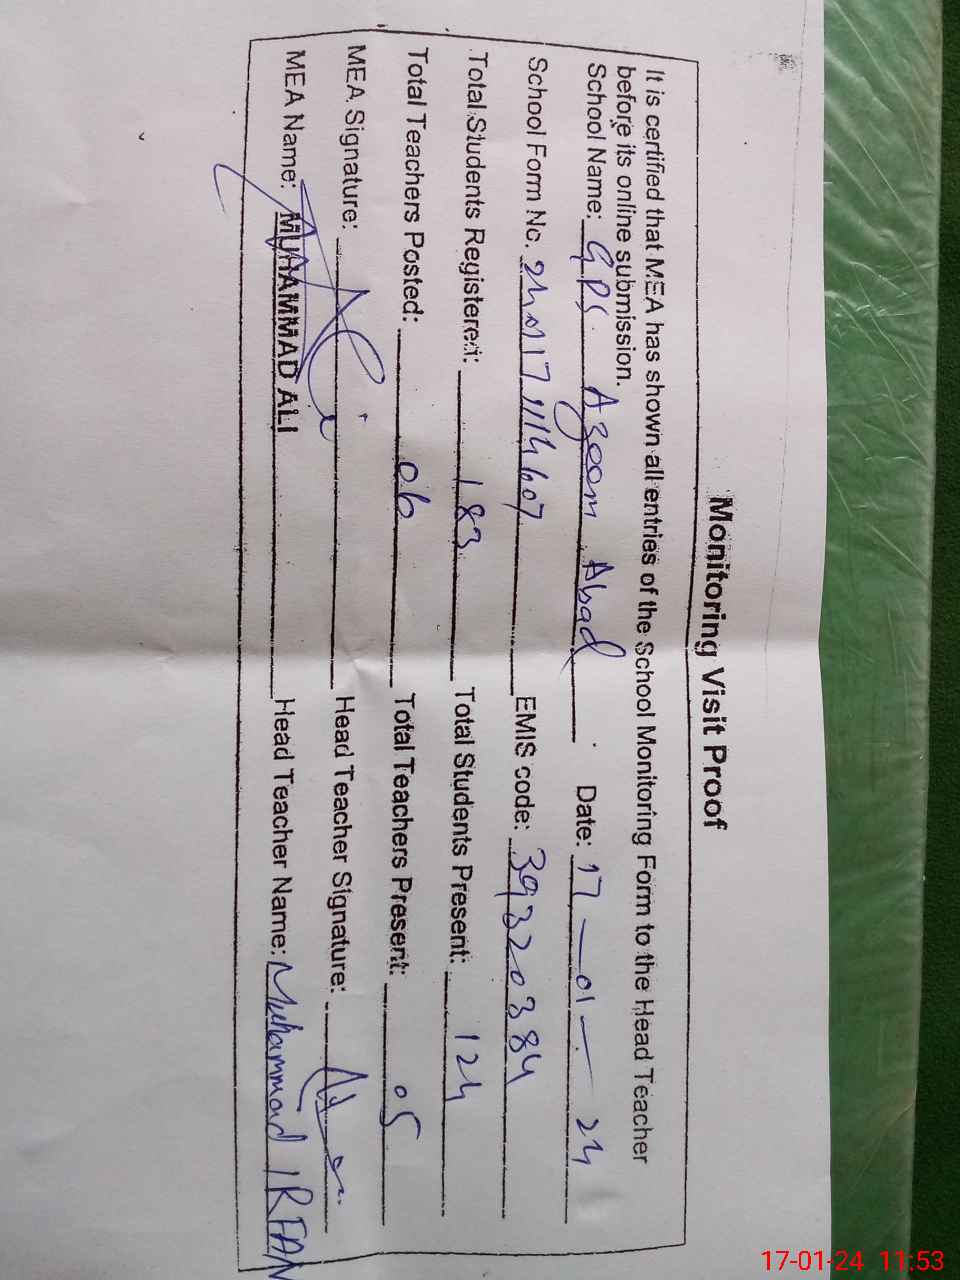 Monitoring Visit Proof
It is certified that MEA has shown all entries of the School Monitoring Form to the Head Teacher
before its online submission.
School Name: GPS Azeem Abad Date: 17-01-24
School Form No. EMIS code: 39320384
Total Students Registered: 183 Total Students Present: 124
Total Teachers Posted: 06 Total Teachers Present: 05
MEA Signature: Head Teacher Signature:
MEA Name: MUHAMMAD ALI Head Teacher Name: Muhammad IRFAN
17-01-24 11:53